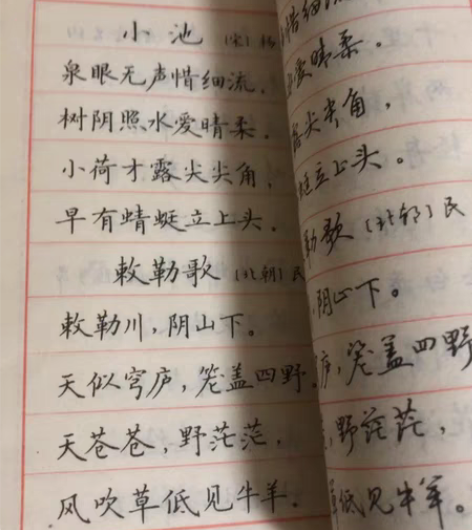 小池 (宋) 杨
泉眼无声惜细流，
树阴照水爱晴柔，
小荷才露尖尖角，
早有蜻蜓立上头。
敕勒歌 (北朝) 民
敕勒川，阴山下。
天似穹庐，笼盖四野
天苍苍，野茫茫，
风吹草低见牛羊。
惜细流
爱晴柔。
露尖尖角，
蜓立上头。
勒歌 (北朝) 民
阴山下。
庐，笼盖四野
，野茫茫，
草低见牛羊。